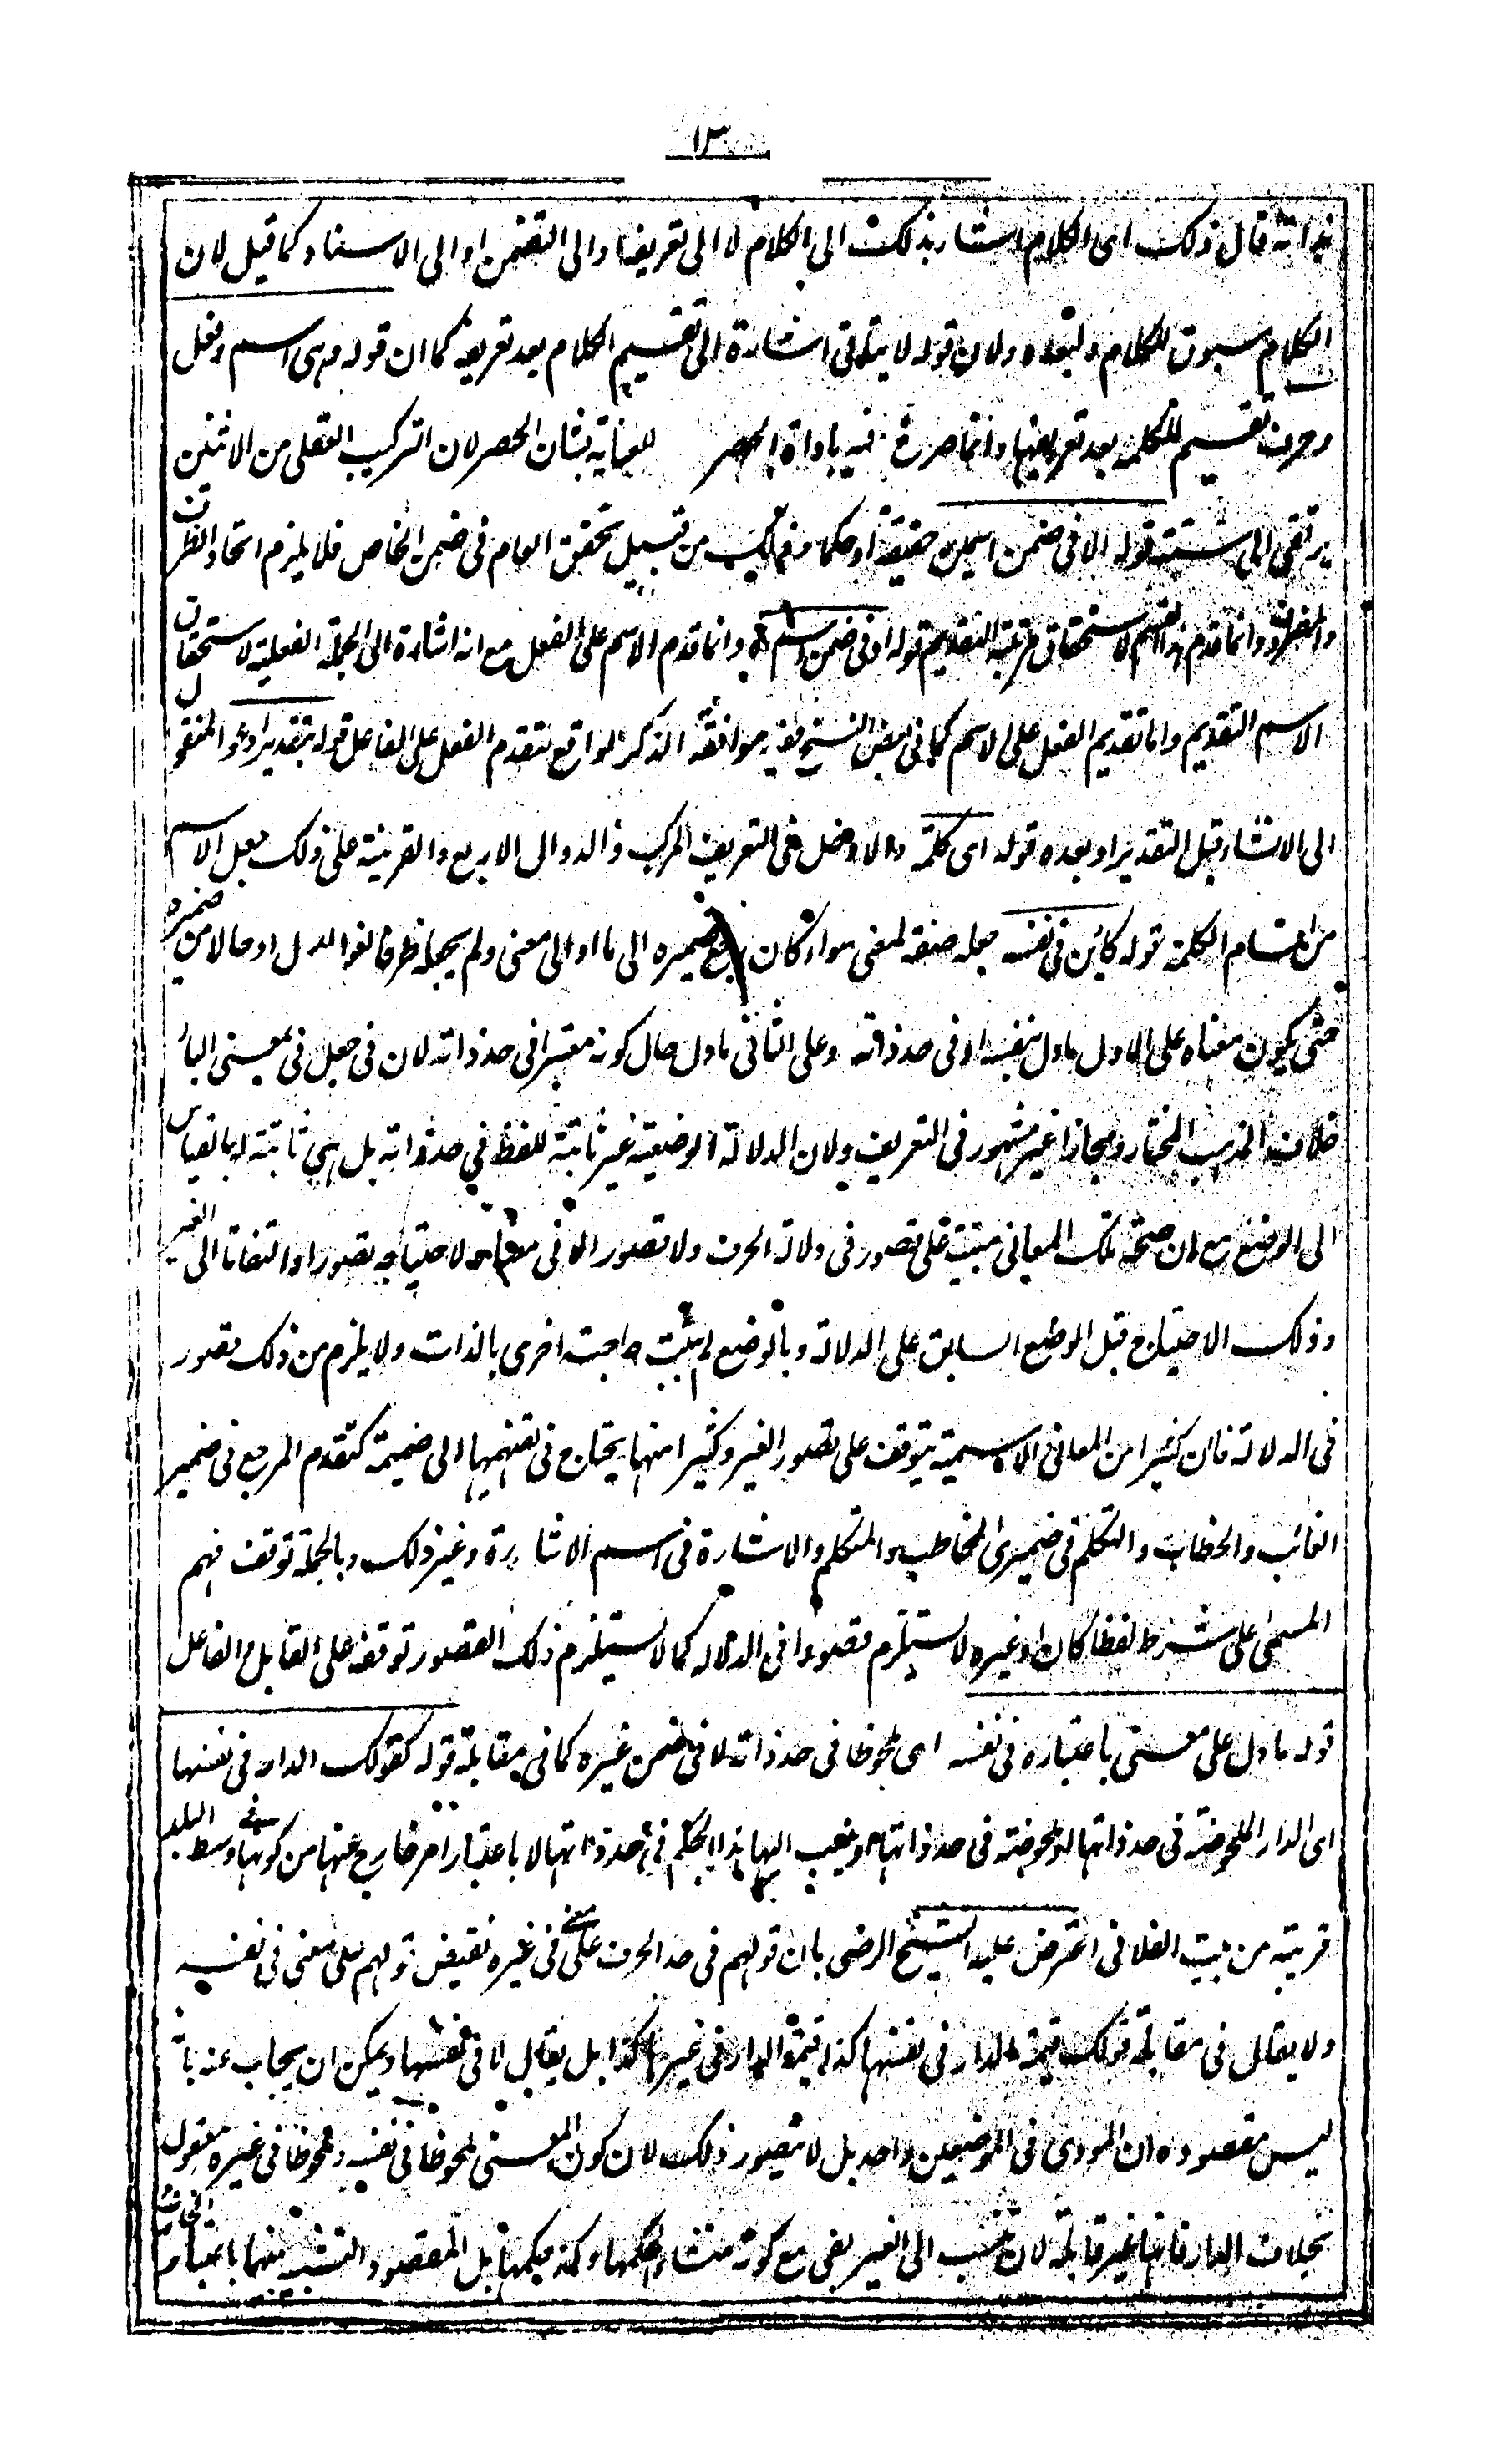 ١٣
بذاته قال ذلك اى الكلام اشار بذلك الى الكلام لا الى تعريفه او الى التضمن او الى الاسناد كما قيل لان
الكلام مسوق للكلام ولبعده ولان قوله لا يتأتى اشارة الى تقسيم الكلام بعد تعريفه كما ان قوله وهى اسم وفعل
وحرف تقسيم للكلمة بعد تعريفها وانما صرح فيه باداة الحصر للعناية بشان الحصر لان التركيب العقلى من الاثنين
يرتقى الى ستة قوله الا فى ضمن اسمين حقيقة او حكما من قبيل تحقق العام فى ضمن الخاص فلا يلزم اتحاد الظرف
والمظروف وانما قدم هذا القسم لاستحقاق مرتبة التقديم قوله او فى ضمن اسم وانما قدم الاسم على الفعل مع انه اشارة الى الجملة الفعلية لاستحقاق
الاسم التقديم واما تقديم الفعل على الاسم كما فى بعض النسخ ففيه موافقة الذكر الواقع لتقدم الفعل على الفاعل قوله بتقدير ادعو المنقول
الى الانشاء قبل التقدير او بعده قوله اى كلمة والا دخل فى التعريف المركب والدوال الاربع والقرينة على ذلك جعل الاسم
من اقسام الكلمة قوله كائن فى نفسه جعله صفة لمعنى سواء كان ضميره الى ما او الى معنى ولم يجعله ظرفا لغوا لدل او حالا من ضميره
حتى يكون معناه على الاول ما دل بنفسه او فى حد ذاته وعلى الثانى ما دل حال كونه معتبرا فى حد ذاته لان فى جعل فى بمعنى الباء
خلاف المذهب المختار ومجازا غير مشهور فى التعريف ولان الدلالة الوضعية غير ثابتة للفظ فى حد ذاته بل هى ثابتة له بالقياس
الى الوضع مع ان صحة تلك المعانى مبتنية على قصور فى دلالة الحرف ولا قصور الا فى معناه لاحتياجه تصورا والتفاتا الى الغير
وذلك الاحتياج قبل الوضع السابق على الدلالة وبالوضع لم يثبت حاجة اخرى بالذات ولا يلزم من ذلك قصور
فى الدلالة فان كثيرا من المعانى الاسمية يتوقف على تصور الغير وكثيرا منها يحتاج فى تفهيمها الى ضميمة كتقدم المرجع فى ضمير
الغائب والخطاب والتكلم فى ضميرى المخاطب والمتكلم والاشارة فى اسم الاشارة وغير ذلك وبالجملة توقف فهم
المسمى على شرط لفظا كان او غيره لا يستلزم قصورا فى الدلالة كما لا يستلزم ذلك القصور توقفه على القابل والفاعل
قوله ما دل على معنى باعتباره فى نفسه اى ملحوظا فى حد ذاته لا فى ضمن غيره كما فى مقابلة قوله كقولك الدار فى نفسها
اى الدار الملحوظة فى حد ذاتها او ملحوظة فى حد ذاتها وينسب اليها هذا الحكم فى حد ذاتها لا باعتبار امر خارج عنها من كونها فى وسط البلد
قريبة من بيت الفلانى اعترض عليه الشيخ الرضى بان قولهم فى حد الحرف على معنى فى غيره نقيض قولهم على معنى فى نفسه
ولا يقال فى مقابلة قولك قيمة الدار فى نفسها كذا قيمة الدار فى غيرها كذا بل يقال لا فى نفسها ويمكن ان يجاب عنه بانه
ليس مقصوده ان المودى فى الموضعين واحد بل لا يتصور ذلك لان كون المعنى ملحوظا فى نفسه وملحوظا فى غيره معقول
بخلاف الدار فانها غير قابلة لان تنسب الى الغير بفى مع كونه منشاء لحكمها وكذا حكمها بل المقصود التشبيه بينهما باعتبار